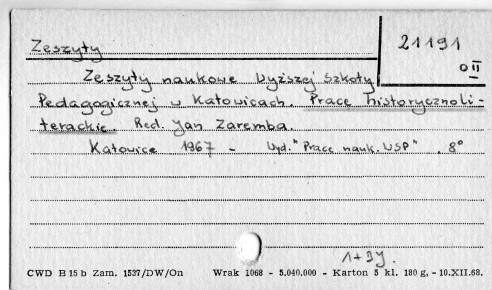 Zeszyty
21191
O II
Zeszyty naukowe Wyższej Szkoły
Pedagogicznej w Katowicach. Prace historycznoli-
terackie. Red. Jan Zaremba.
Katowice 1967 - Wyd. "Prace nauk. WSP". 8°
1+3y.
CWD B 15 b Zam. 1537/DW/On Wrak 1068 - 5.040.000 - Karton 5 kl. 180 g. - 10.XII.68.